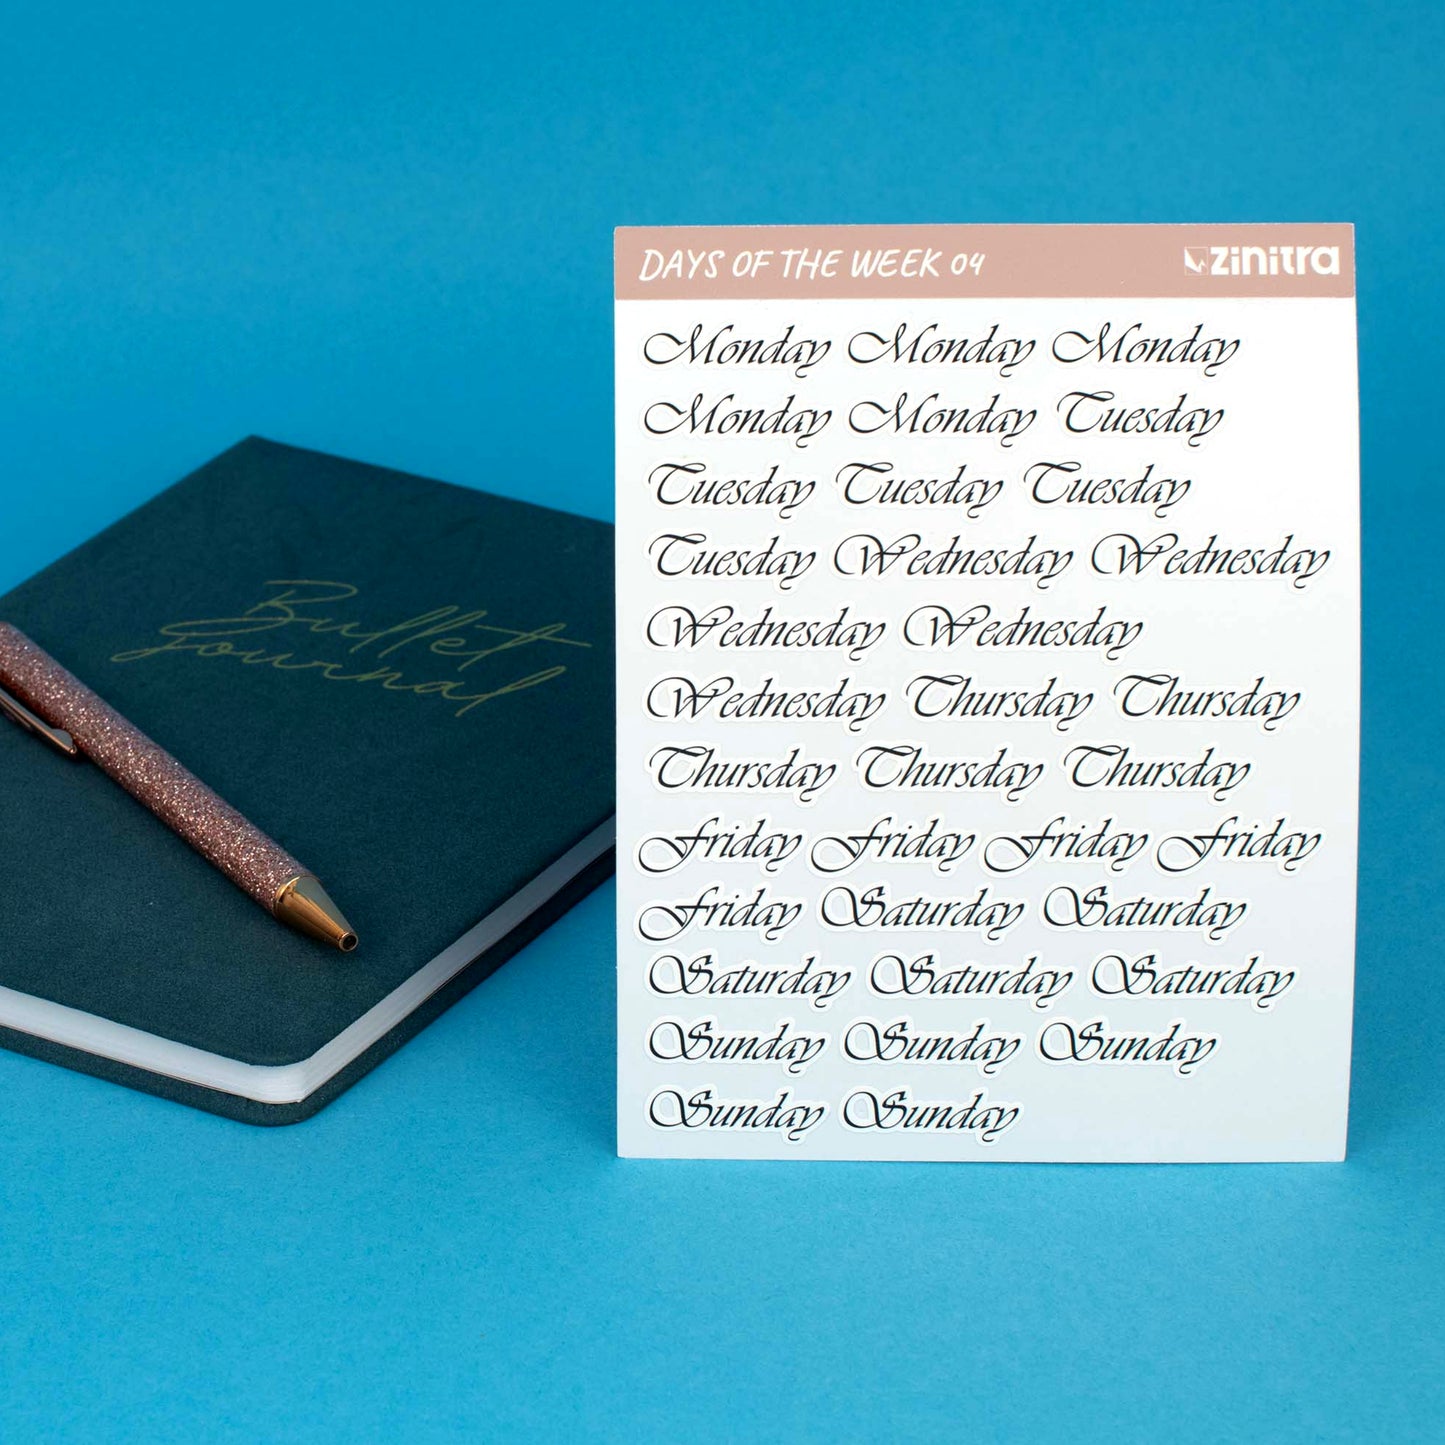 DAYS OF THE WEEK 04 zinitra
Monday Monday Monday
Monday Monday Tuesday
Tuesday Tuesday Tuesday
Tuesday Wednesday Wednesday
Wednesday Wednesday
Wednesday Thursday Thursday
Thursday Thursday Thursday
Friday Friday Friday Friday
Friday Saturday Saturday
Saturday Saturday Saturday
Sunday Sunday Sunday
Sunday Sunday
Bullet
Journal